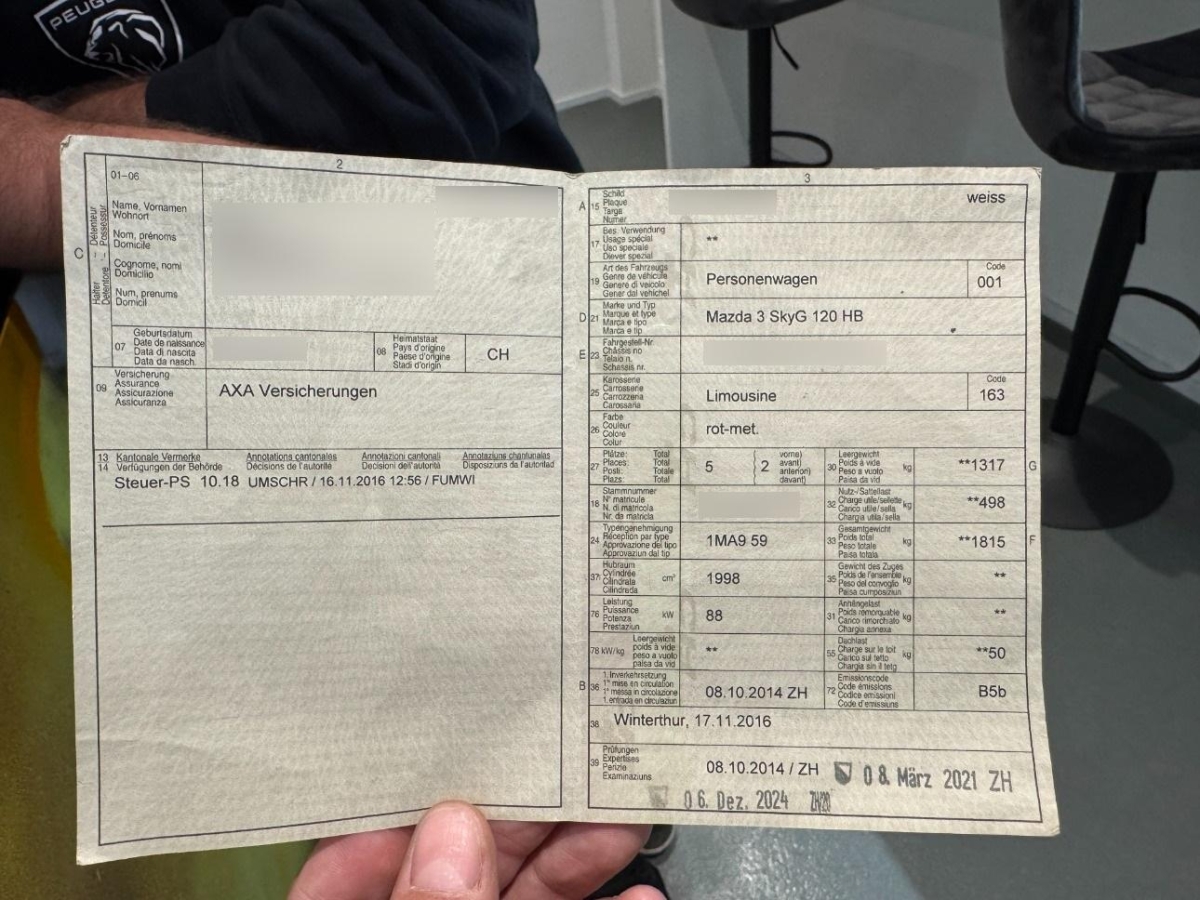 PEUG
2
01-06
C
Halter – Détenteur
Detentore – Possessur
Name, Vornamen
Wohnort
Nom, prénoms
Domicile
Cognome, nomi
Domicilio
Num, prenums
Domicil
07
Geburtsdatum
Date de naissance
Data di nascita
Data da nasch.
08
Heimatstaat
Pays d'origine
Paese d'origine
Stadi d'origin
CH
09
Versicherung
Assurance
Assicurazione
Assicuranza
AXA Versicherungen
13 Kantonale Vermerke Annotations cantonales Annotazioni cantonali Annotaziuns chantunalas
14 Verfügungen der Behörde Décisions de l'autorité Decisioni dell'autorità Disposiziuns da l'autoritad
Steuer-PS 10.18 UMSCHR / 16.11.2016 12:56 / FUMWI
3
A 15
Schild
Plaque
Targa
Numer
weiss
17
Bes. Verwendung
Usage spécial
Uso speciale
Diever spezial
**
19
Art des Fahrzeugs
Genre de véhicule
Genere di veicolo
Gener dal vehichel
Personenwagen
Code
001
D 21
Marke und Typ
Marque et type
Marca e tipo
Marca e tip
Mazda 3 SkyG 120 HB
E 23
Fahrgestell-Nr.
Châssis no
Telaio n.
Schassis nr.
25
Karosserie
Carrosserie
Carrozzeria
Carossaria
Limousine
Code
163
26
Farbe
Couleur
Colore
Colur
rot-met.
27
Plätze: Total
Places: Total
Posti: Totale
Plazs: Total
5
2
vorne)
avant)
anteriori)
davant)
30
Leergewicht
Poids à vide
Peso a vuoto
Paisa da vid
kg
**1317
G
18
Stammnummer
N° matricule
N. di matricola
Nr. da matricla
32
Nutz-/Sattellast
Charge utile/sellette
Carico utile/sella
Chargia utila/sella
kg
**498
24
Typengenehmigung
Réception par type
Approvazione del tipo
Approvaziun dal tip
1MA9 59
33
Gesamtgewicht
Poids total
Peso totale
Paisa totala
kg
**1815
F
37
Hubraum
Cylindrée
Cilindrata
Cilindrada
cm³
1998
35
Gewicht des Zuges
Poids de l'ensemble
Peso del convoglio
Paisa cumposiziun
kg
**
76
Leistung
Puissance
Potenza
Prestaziun
kW
88
31
Anhängelast
Poids remorquable
Carico rimorchiato
Chargia annexa
kg
**
78 kW/kg
Leergewicht
poids à vide
peso a vuoto
paisa da vid
**
55
Dachlast
Charge sur le toit
Carico sul tetto
Chargia sin il tetg
kg
**50
B 36
1. Inverkehrsetzung
1re mise en circulation
1a messa in circolazione
1. entrada en circulaziun
08.10.2014 ZH
72
Emissionscode
Code émissions
Codice emissioni
Code d'emissiuns
B5b
38
Winterthur, 17.11.2016
39
Prüfungen
Expertises
Perizie
Examinaziuns
08.10.2014 / ZH
08. März 2021 ZH
06. Dez. 2024